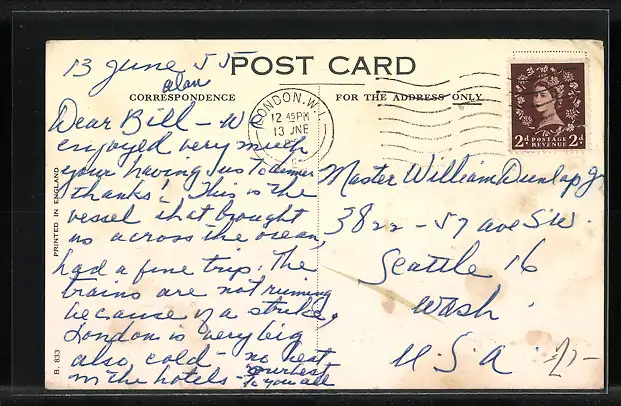 13 June 55
alan
POST CARD
CORRESPONDENCE
FOR THE ADDRESS ONLY
LONDON.W.1
12 45 PM
13 JNE
2d POSTAGE REVENUE 2d
Dear Bill - We
enjoyed very much
your having us to dinner
thanks! This is the
vessel that brought
us across the ocean,
had a fine trip. The
trains are not running
because of a strike,
London is very big
also cold - no heat
in the hotels -
our best
to you all
Master William Dunlap Jr
3822 - 57 ave SW.
Seattle 16
Wash.
U.S.A.
PRINTED IN ENGLAND
B. 833